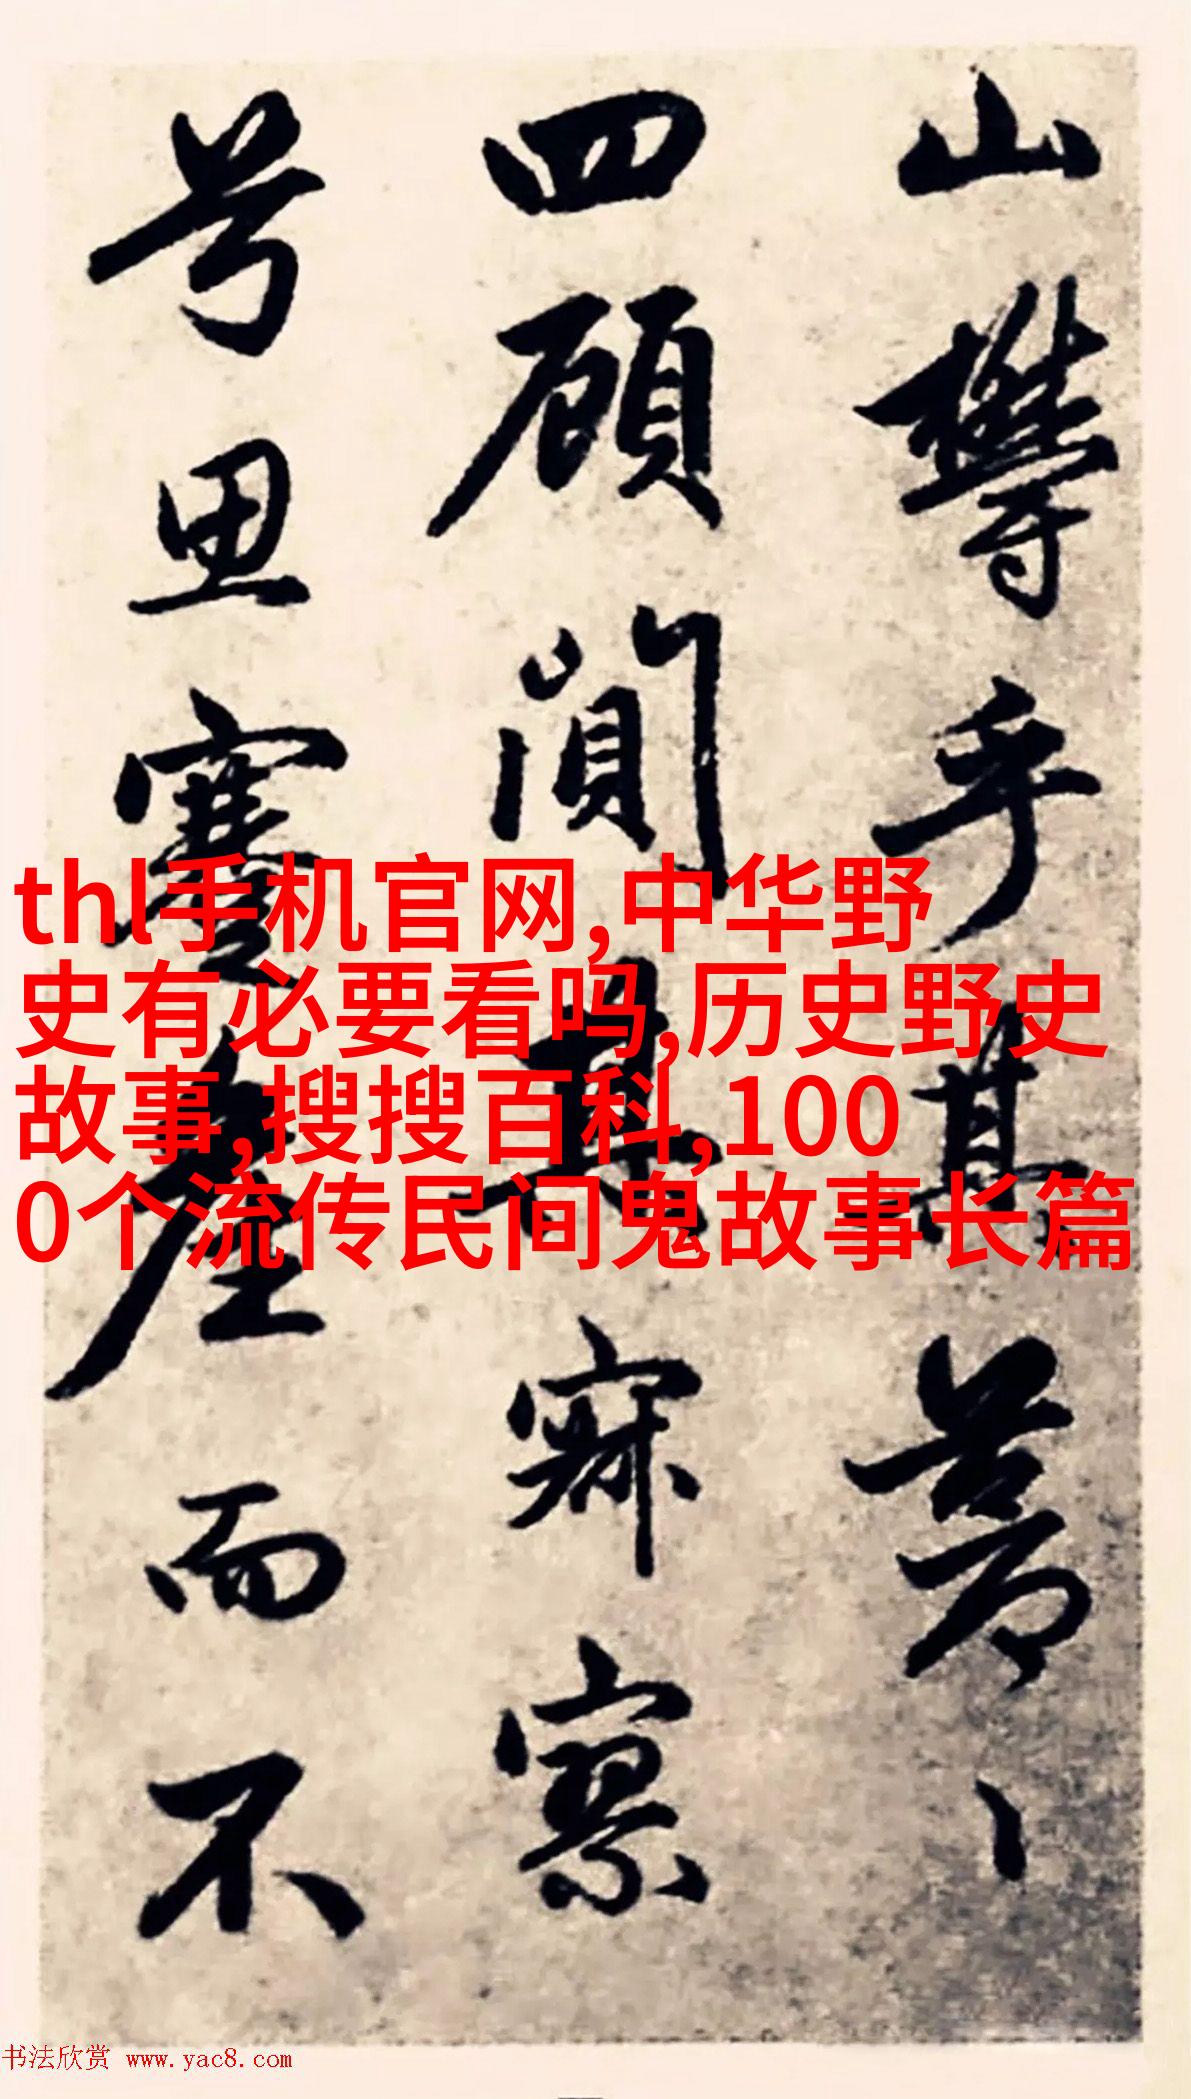 山欝乎其蒼〻
四顧闃其寂寥
兮思蹇產而不
thl手机官网,中华野
史有必要看吗,历史野史
故事,搜搜百科,100
0个流传民间鬼故事长篇
书法欣赏 www.yac8.com